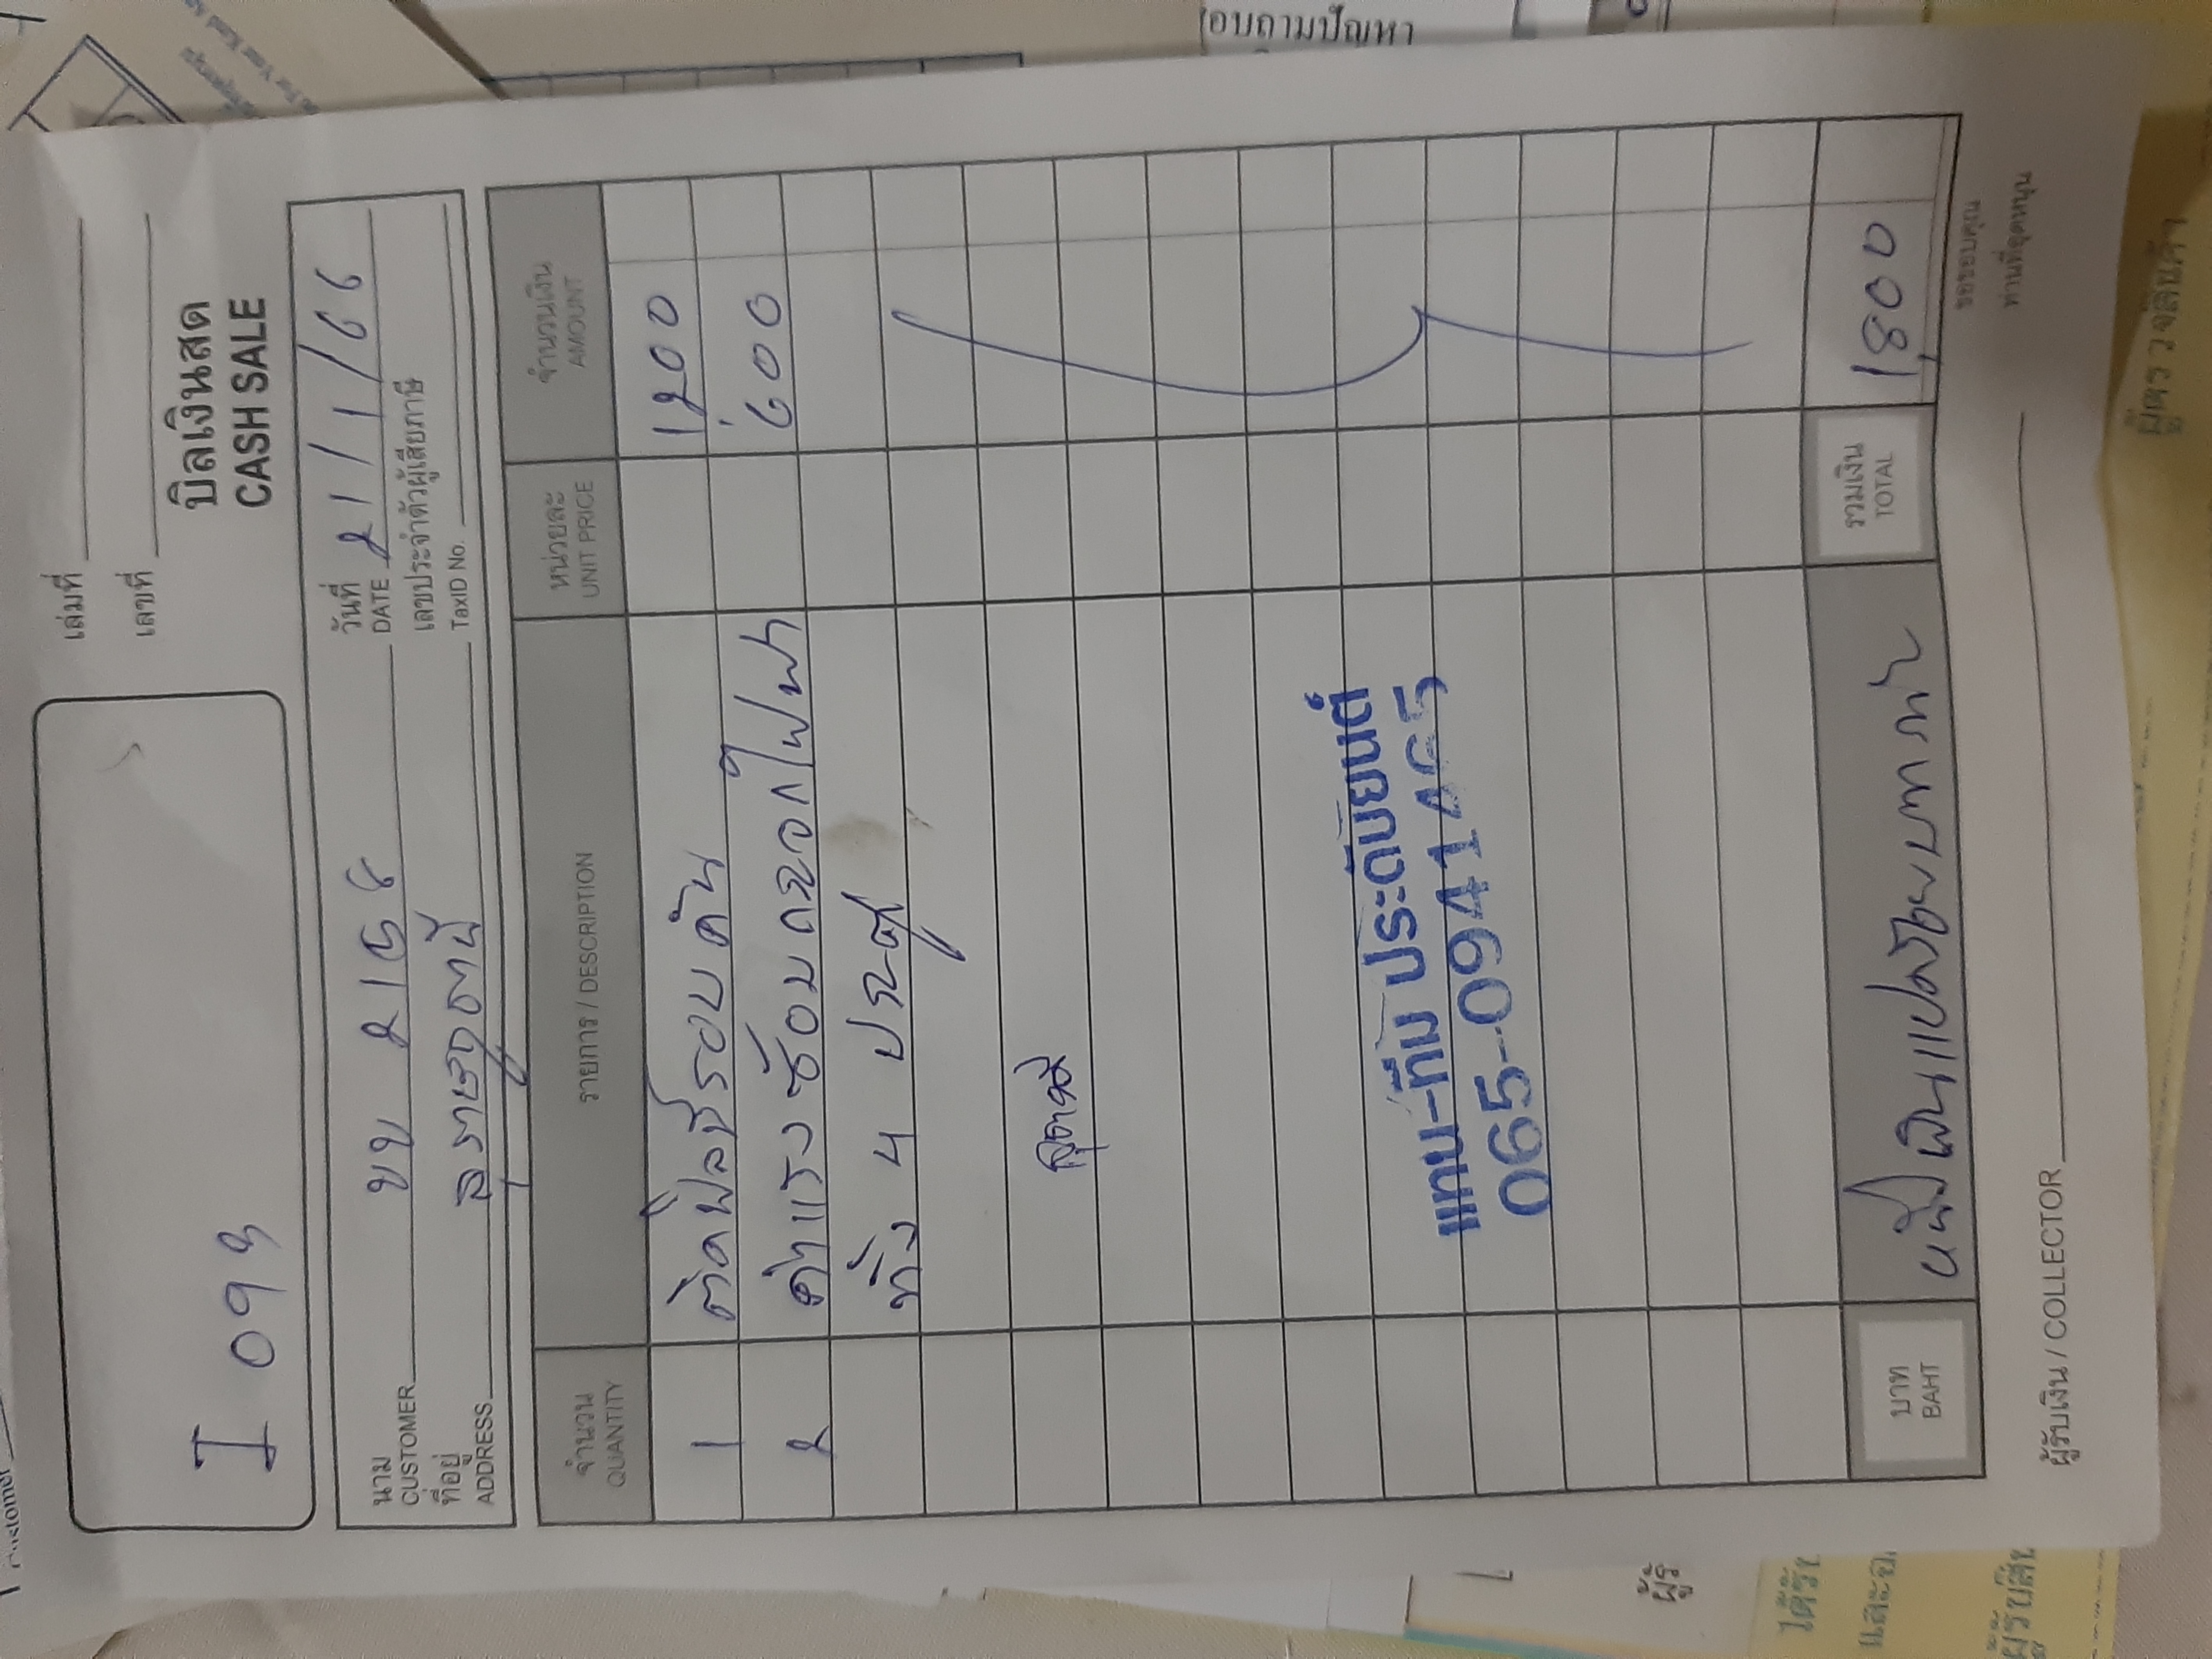 อบถามปัญหา
เล่มที่
เลขที่
I 093
บิลเงินสด
CASH SALE
นาม
CUSTOMER ขข 2158
วันที่
DATE 21/1/66
ที่อยู่
ADDRESS สุราษฎร์ธานี
เลขประจำตัวผู้เสียภาษี
TaxID No.
จำนวน รายการ / DESCRIPTION หน่วยละ จำนวนเงิน
QUANTITY UNIT PRICE AMOUNT
1 ติดฟิล์มรอบคัน 1200
2 ค่าแรงซ้อมกระจกไฟฟ้า 600
ทั้ง 4 ประตู
แทน-ทีม ประดับยนต์
บาท
BAHT หนึ่งพันแปดร้อยบาทถ้วน
รวมเงิน
TOTAL 1,800
ผู้รับเงิน / COLLECTOR
ขอขอบคุณ
ท่านที่อุดหนุน
ผู้ตรวจสินค้า